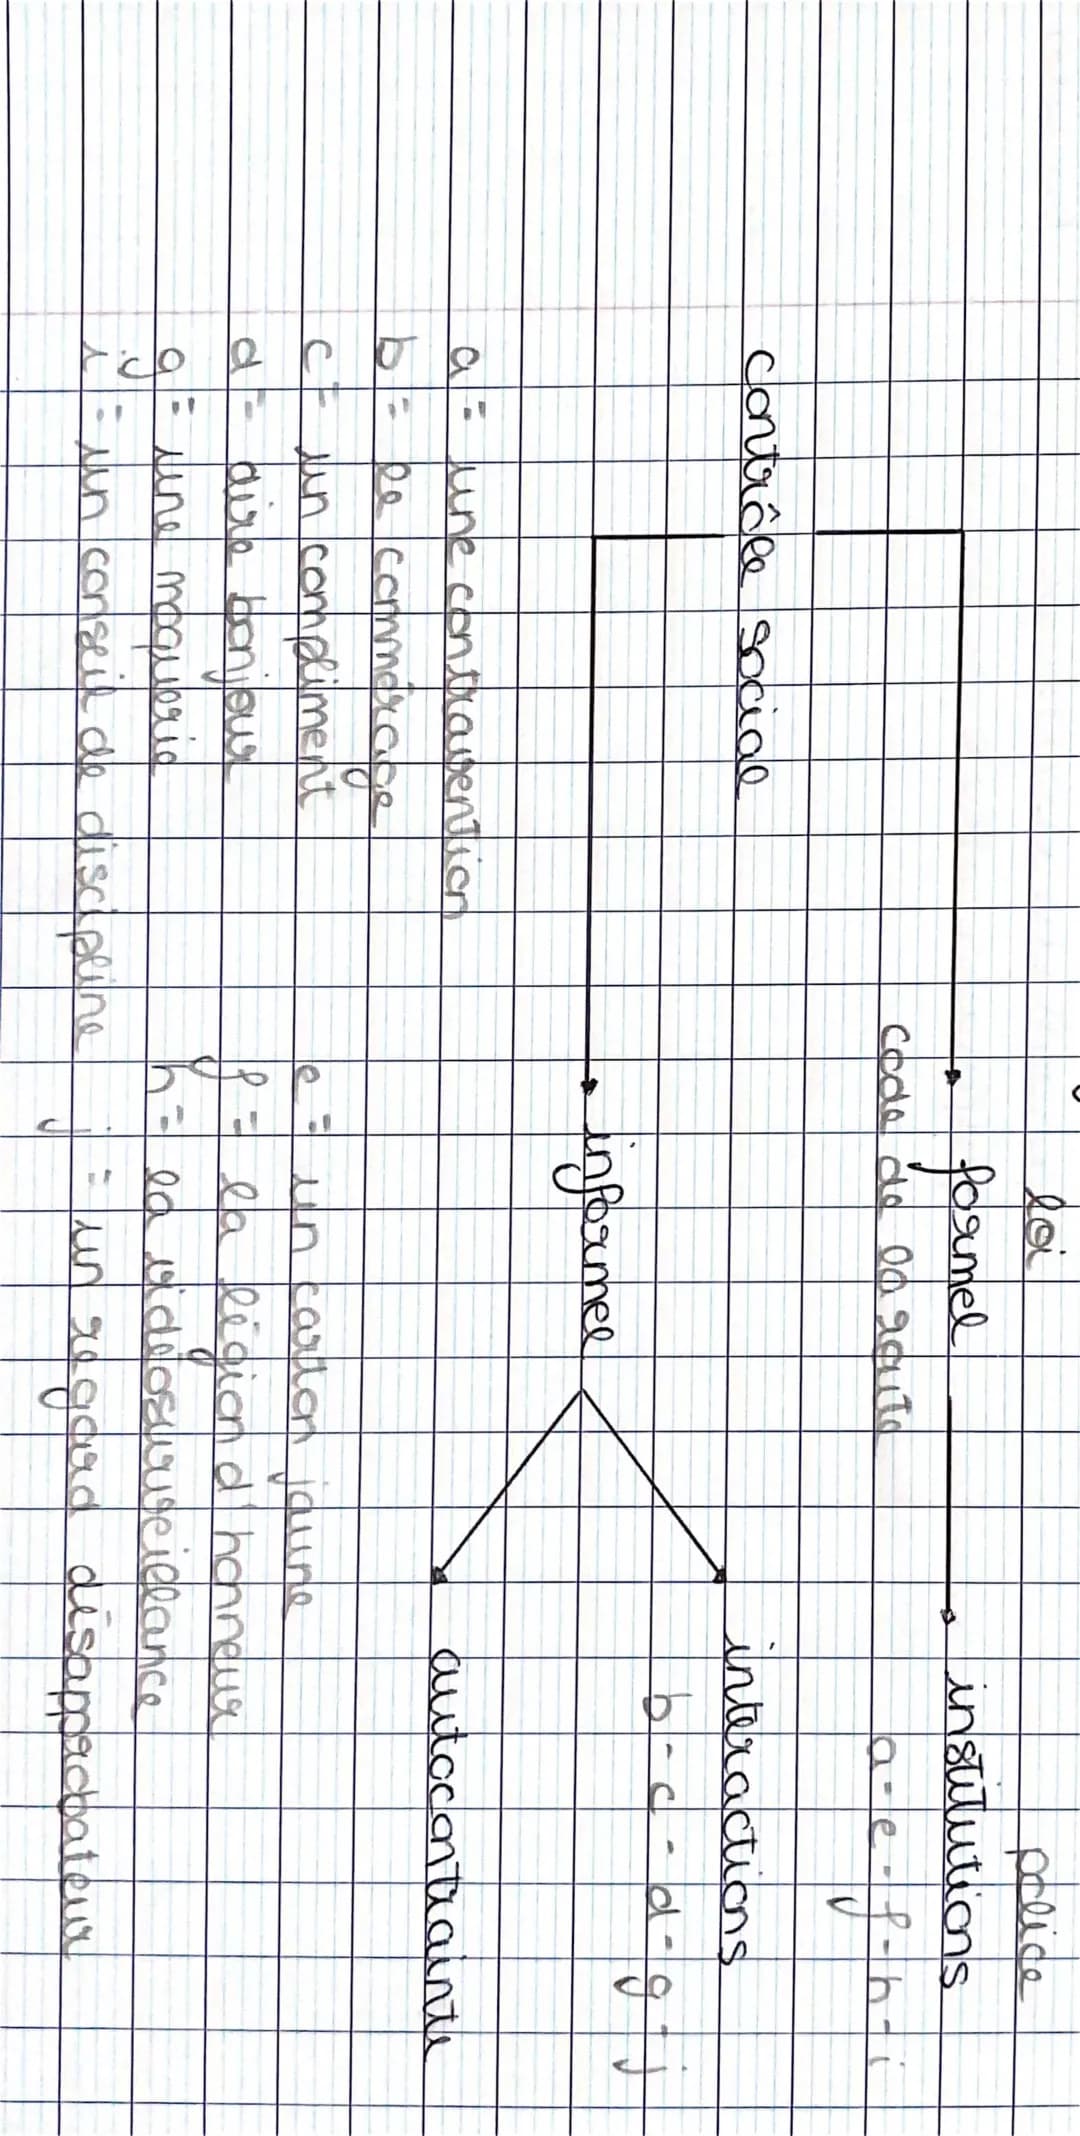 loi police
formel institutions
code de la route a-e-f-h-i
contrôle social
interactions
b-c-d-g-j
informel
autocontrainte
a = une contravention
b = le commérage
c = un compliment e = un carton jaune
d = dire bonjour f = la légion d'honneur
g = une moquerie h = la vidéosurveillance
i = un conseil de discipline j = un regard désapprobateur